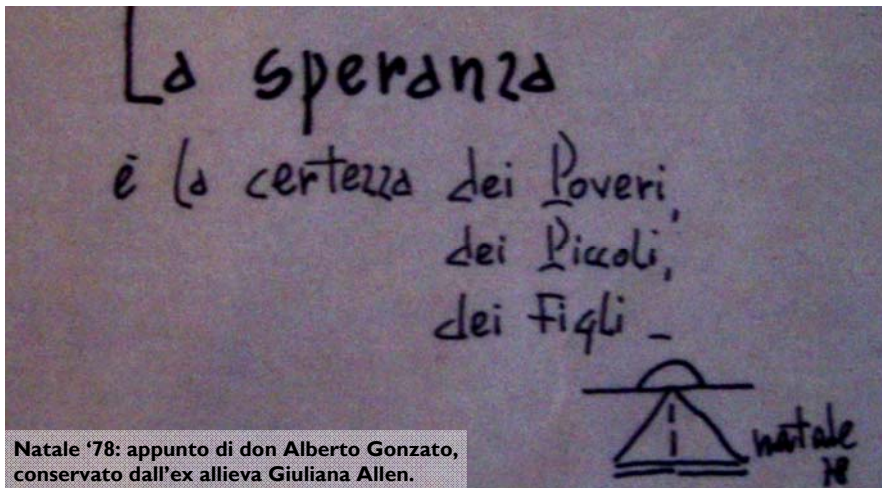 La speranza
è la certezza dei Poveri,
dei Piccoli,
dei Figli -
natale
78
Natale ‘78: appunto di don Alberto Gonzato,
conservato dall'ex allieva Giuliana Allen.